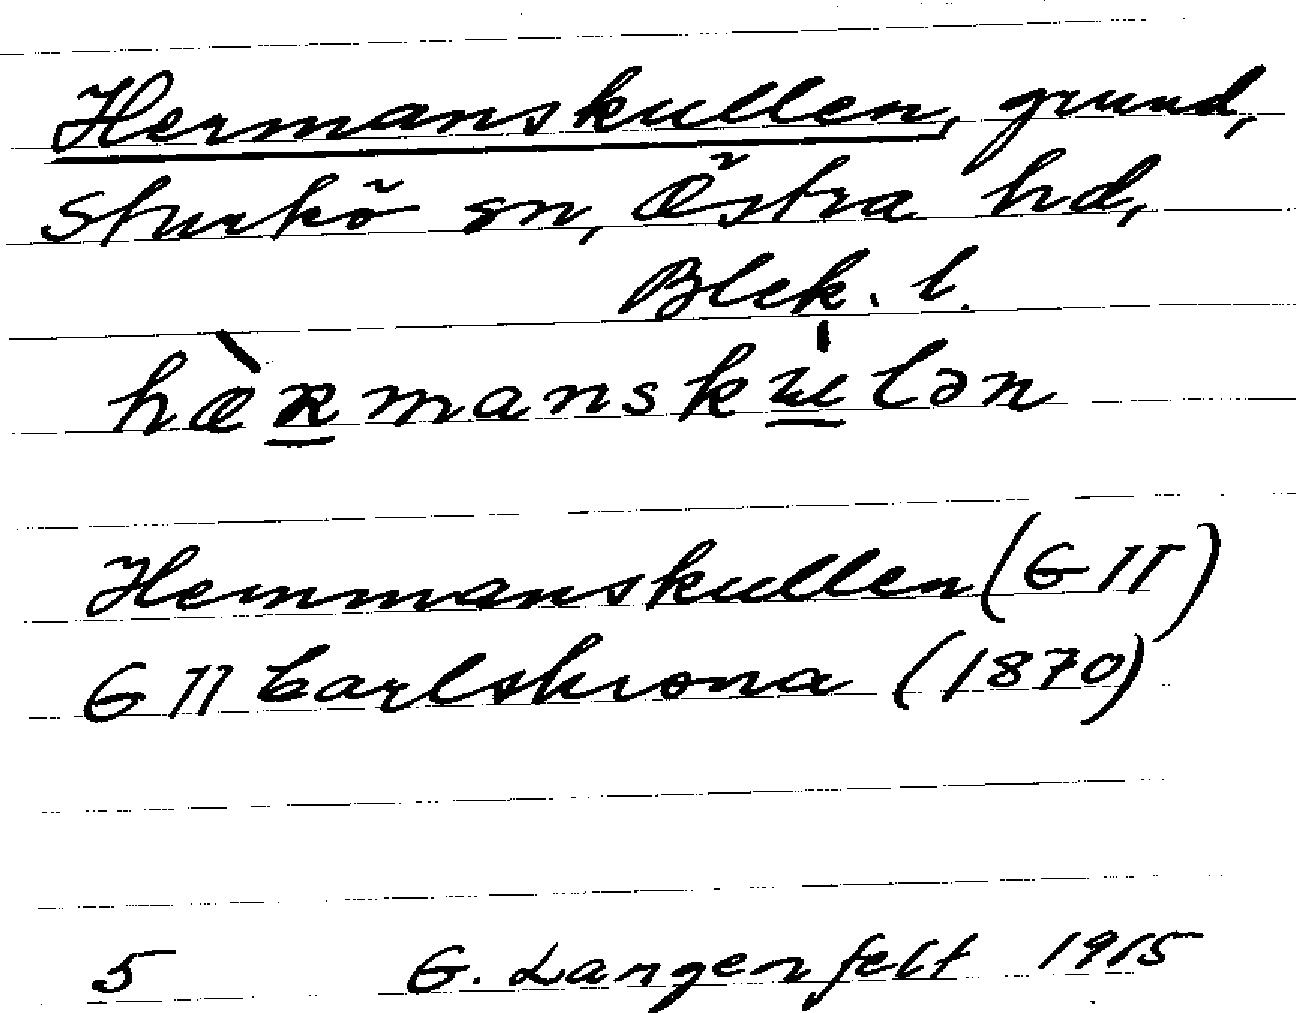 Hermanskullen, grund,
Sturkö sn, Östra hd,
Blek. l.
hæ̀ʀmanskúlən
Hemmanskullen (G II)
G II Carlskrona (1870)
5 G. Langenfelt 1915